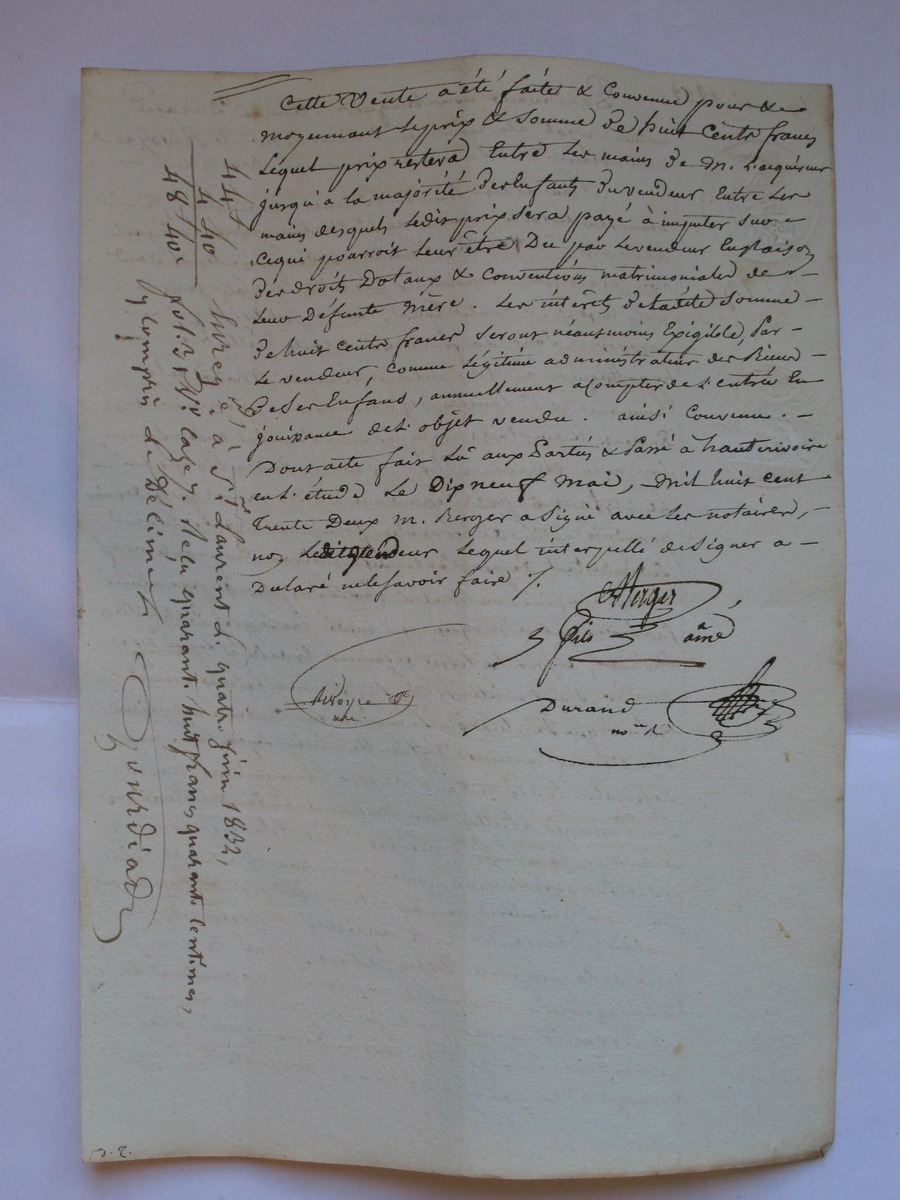 Cette Vente a été faite & Convenue pour &
moyennant le prix & Somme de huit Cents francs
Lequel prix restera Entre Les mains de M. L'acquéreur
jusqu'à la majorité des Enfants du vendeur Entre Les
mains desquels Ledit prix sera payé à imputer sur
Ce qui pourroit Leur être Du par Le vendeur En raison
Des droits Dotaux & Conventions matrimoniales de
Leur Défunte Mère. Les intérêts De Ladite Somme
De huit cents francs seront néantmoins Exigible, Par
Le vendeur, comme Légitime administrateur des Biens
De Ses Enfans, annuellement a Compter de L'entrée En
jouissance de L'objet vendu. ainsi Convenu.
Dont acte fait Lû aux Parties & Passé à hauterivoire
en L'étude Le Dix neuf Mai, Mil huit cent
Trente Deux M. Berger a Signé avec Les notaires,
non Ledit vendeur Lequel interpellé de Signer a
Déclaré ne le Savoir faire /.
Berger
fils aîné
Durand
nore
44 f
4 40
48 f 40 c
Enregé. à St. Laurent L. quatre juin 1832,
fol. 3 Vo. Case 7. Reçu quarante huit francs quarante Centimes,
y compris Le Décime